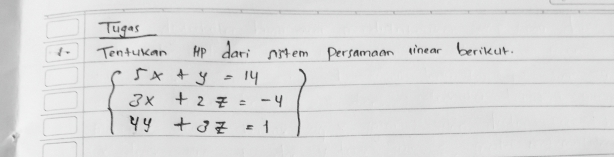 Tugas
1. Tentukan HP dari sistem persamaan linear berikut.
5x + y = 14
3x + 2z = -4
4y + 3z = 1